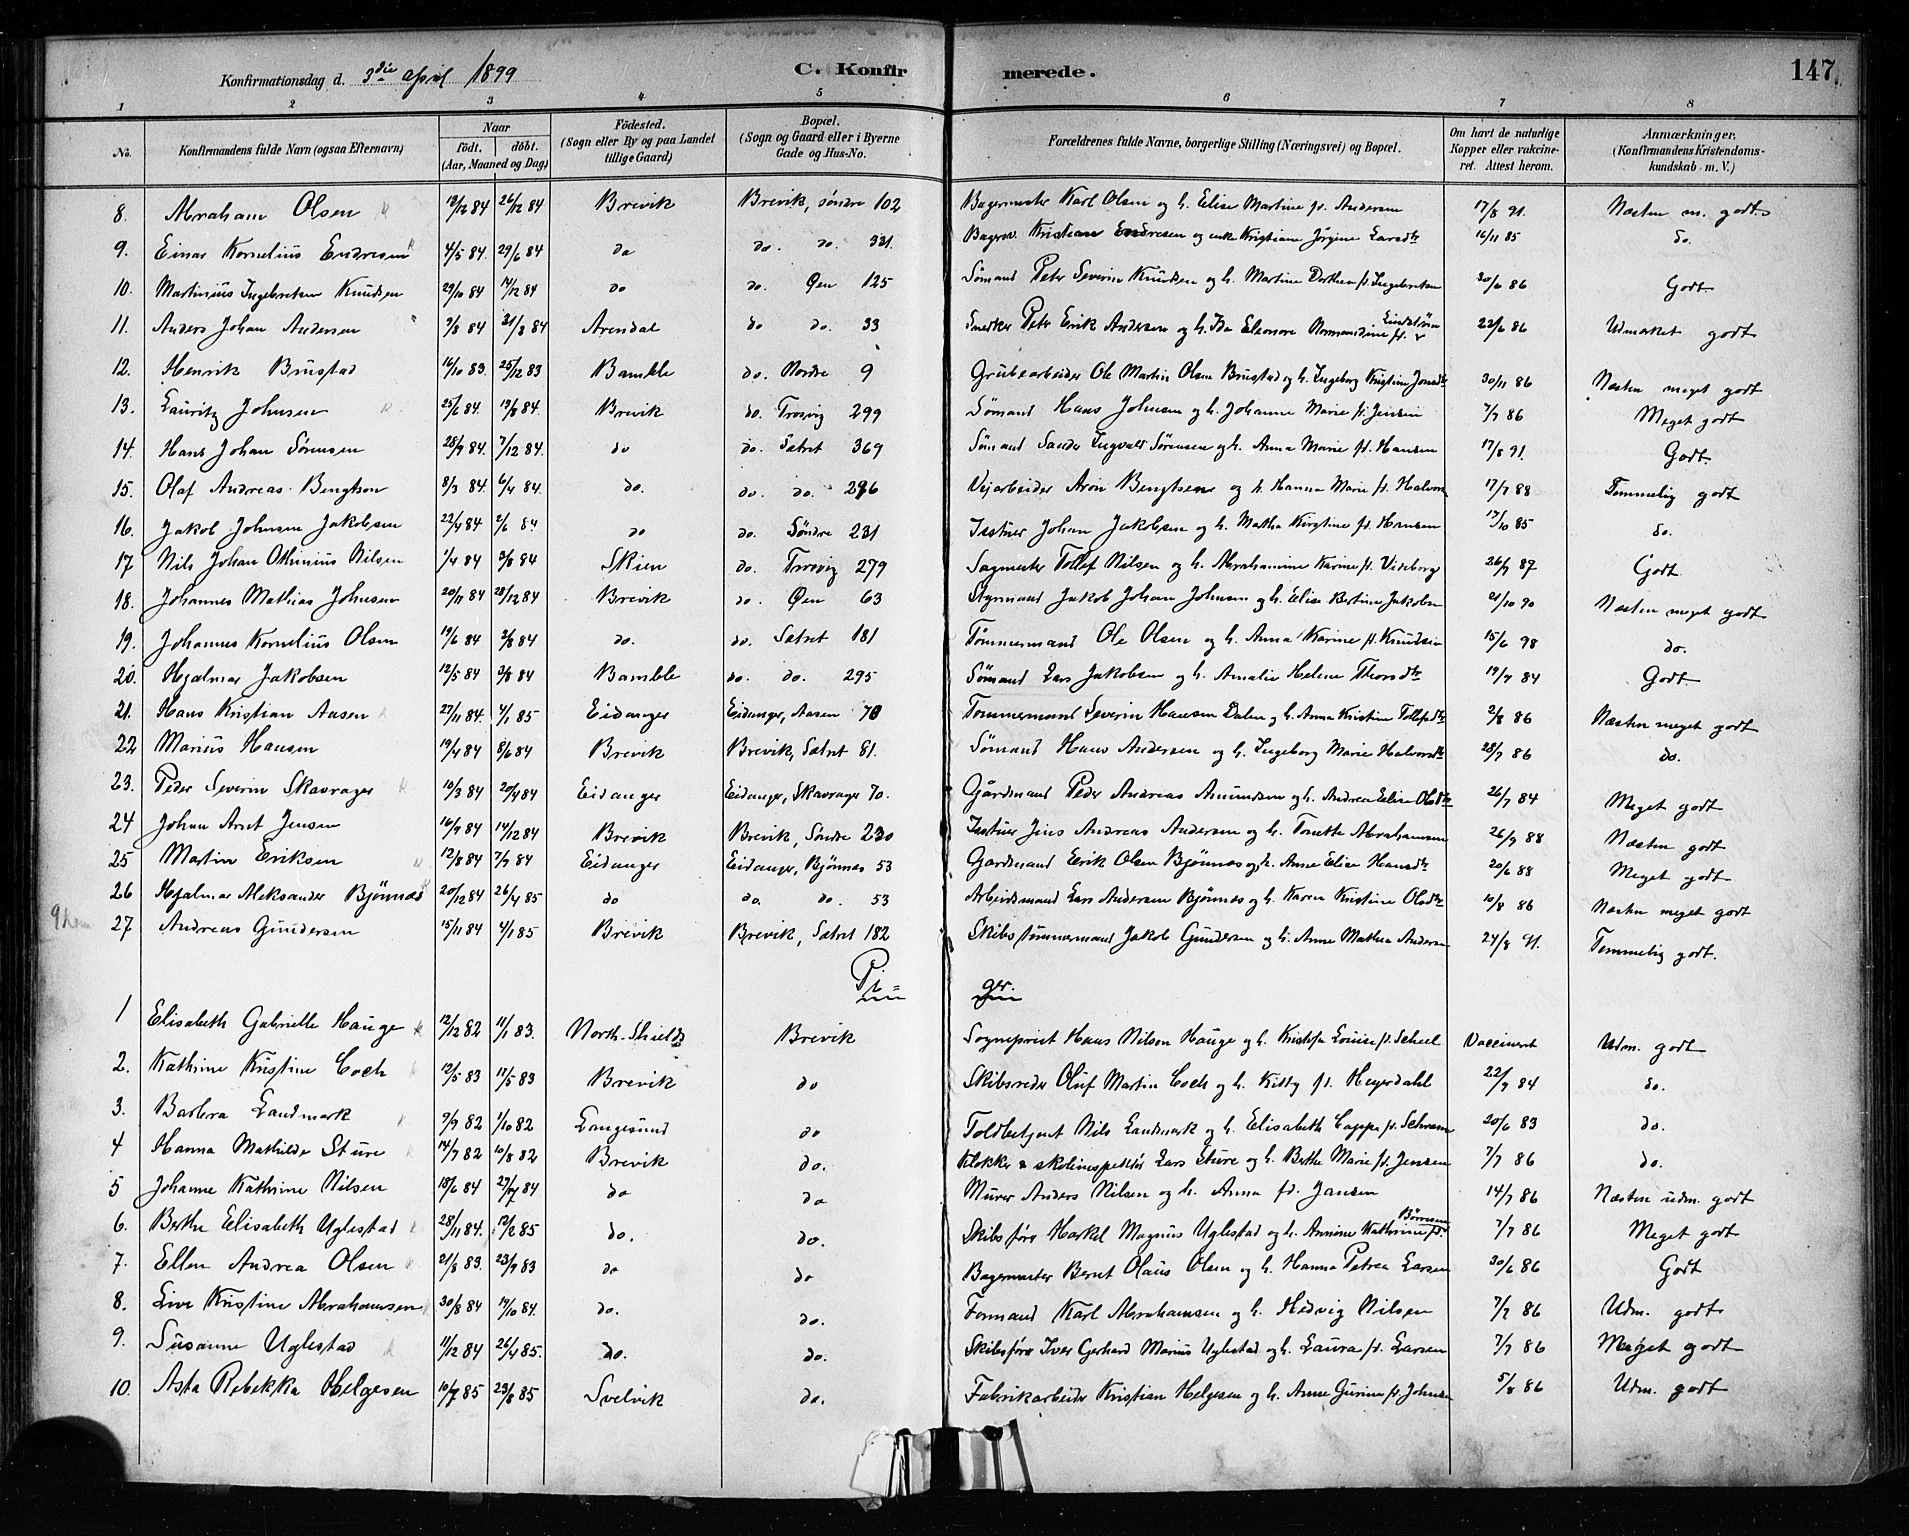 Konfirmationsdag d. 3die april 1899 C. Konfirmerede. 147
1 2 3 4 5 6 7 8
No. Konfirmandens fulde Navn (ogsaa Efternavn) Naar födt. döbt. (Aar, Maaned og Dag) Födested. (Sogn eller By og paa Landet tillige Gaard) Bopæl. (Sogn og Gaard eller i Byerne Gade og Hus-No. Forældrenes fulde Navne, borgerlige Stilling (Næringsvei) og Bopæl. Om havt de naturlige Kopper eller vakcineret. Attest herom. Anmærkninger. (Konfirmandens Kristendomskundskab m. V.)
8. Abraham Olsen 12/12 84 26/12 84 Brevik Brevik, söndre 102 Bagermester Karl Olsen og h. Elise Martine f. Andersen 17/8 91. Næsten m. godt.
9. Einar Kornelius Endresen 4/5 84. 29/6 84 do do. do. 331. Kristian Endresen og enke Kristiane Jörgine Larsdtr 16/11 85 do.
10. Martinius Ingebretsen Knudsen 29/10 84 14/12 84 do do. Øen 125 Sömand Peter Severin Knudsen og h. Martine Dorthea f. Ingebretsen 30/6 86 Godt.
11. Anders Johan Andersen 9/8 84 31/8 84 Arendal do do. 33 Snedker Peter Erik Andersen og h. Ida Eleonore Normandine f. Lindström 22/6 86 Udmærket godt
12. Henrik Brustad 16/10 83. 25/12 83 Bamble do. Nordre 9 Grubearbeider Ole Martin Olsen Brustad og h. Ingeborg Kristine Jonsdtr 30/11 86 Næsten meget godt
13. Lauritz Johnsen 25/6 84. 13/8 84. Brevik do. Trosvig 299 Sömand Hans Johnsen og h. Johanne Marie f. Jensen 7/7 86 Meget godt
14. Hans Johan Sörensen 28/9 84. 7/12 84. do do. Sætret 369 Sömand Sander Ingvald Sörensen og h. Anna Marie f. Hansen 17/8 91. Godt.
15. Olaf Andreas Bengtson 8/3 84. 6/4 84. do. do. do. 296 Veiarbeider Aron Bengtsen og h. Hanna Marie f. Halvors 17/7 88 Temmelig godt
16. Jakob Johnsen Jakobsen 22/4 84 2/6 84 do do. Söndre 231 Isstuer Johan Jakobsen og h. Matha Kirstine f. Hansen 17/10 85 do.
17 Nils Johan Othinius Nilsen 1/4 84 3/8 84 Skien do. Trosvig 279 Sagmester Tollef Nilsen og h. Abrahamine Karine f. Viseborg 26/7 87 Godt
18. Johannes Mathias Johnsen 20/11 84 28/12 84 Brevik do. Øen 63 Styrmand Jakob Johan Johnsen og h. Elise Bertine Jakobsen 21/10 90 Næsten meget godt
19. Johannes Kornelius Olsen 19/6 84 3/8 84 do. do. Sætret 181 Tömmermand Ole Olsen og h. Anna Karine f. Knudsen 15/6 98 do.
20. Hjalmar Jakobsen 12/5 84 3/8 84 Bamble do. do. 295 Sömand Lars Jakobsen og h. Amalie Helene Thorsdtr 19/7 84 Godt.
21. Hans Kristian Aasen 27/11 84. 4/1 85 Eidanger Eidanger, Aasen 70 Tömmermand Severin Hansen Dalen og h. Anna Kristine Tollefsdtr 2/8 86 Næsten meget godt
22 Marius Hansen 19/4 84 8/6 84 Brevik Brevik, Sætret 81. Sömand Hans Andersen og h. Ingeborg Marie Halvorsdtr 28/7 86 do.
23. Peder Severin Skavrager 10/3 84 20/4 84 Eidanger Eidanger, Skavrager 70. Gårdmand Peder Andreas Amundsen og h. Andrea Elise Olsdtr 26/7 84 Meget godt
24 Johan Arnt Jensen 16/9 84 14/12 84 Brevik Brevik, Söndre 230 Isstuer Jens Andreas Andersen og h. Tonette Abrahamsen 26/9 88 Næsten godt
25 Martin Eriksen 12/8 84 7/9 84 Eidanger Eidanger, Bjönnes 53 Gårdmand Erik Olsen Bjönnes og h. Anne Elise Hansdtr 20/6 88 Meget godt
26 Hjalmar Aleksander Bjönnes 20/12 84 26/4 85 do do. do. 53 Arbeidsmand Lars Andersen Bjönnes og h. Karen Kristine Olsdtr 10/8 86 Næsten meget godt
27 Andreas Gundersen 15/11 84 4/1 85 Brevik Brevik, Sætret 182 Skibstömmermand Jakob Gundersen og h. Anne Mathea Andersen 24/8 91. Temmelig godt.
Piger.
1 Elisabeth Gabrielle Hauge 12/12 82 11/1 83. North-Shields Brevik Sogneprest Hans Nilsen Hauge og h. Louise f. Scheel Vaccineret Udm. godt
2. Kathrine Kristine Coch 12/5 83 17/5 83 Brevik do Skibsreder Oluf Martin Coch og h. Kitty f. Heyerdahl 22/9 84 do.
3. Barbra Landmark 9/9 82 1/10 82 Langesund do Toldbetjent Nils Landmark og h. Elisabeth Cappe f. Schram 20/6 83 do.
4 Hanna Mathilde Sture 14/7 82 10/8 82 Brevik do. Klokker & skoleinspektör Lars Sture og h. Berthe Marie f. Jensen 7/7 86 do.
5 Johanne Kathrine Nilsen 18/6 84 27/7 84 do do Murer Anders Nilsen og h. Anna f. Jansen 14/7 86 Næsten udm. godt
6. Berthe Elisabeth Uglestad 28/11 84. 12/2 85 do. do. Skibsförer Markel Magnus Uglestad og h. Annine Kathrine f. Börresen 7/7 86 Meget godt
7. Ellen Andrea Olsen 21/8 83. 23/9 83 do do Bagermester Bernt Olaus Olsen og h. Hanna Petrea Larsen 30/6 86 Godt
8. Live Kristine Abrahamsen 30/8 84 19/10 84. do. do. Formand Karl Abrahamsen og h. Hedvig Nilsen 7/7 86 Udm. godt
9. Susanne Uglestad 11/12 84 26/4 85. do. do. Skibsförer Iver Gerhard Marius Uglestad og h. Laura f. Larsen 7/7 86 Meget godt
10. Asta Rebekka Helgesen 10/7 85 23/8 85 Svelvik do. Fabrikarbeider Kristian Helgesen og h. Anne Gurine f. Johnsen 5/8 86 Udm. godt